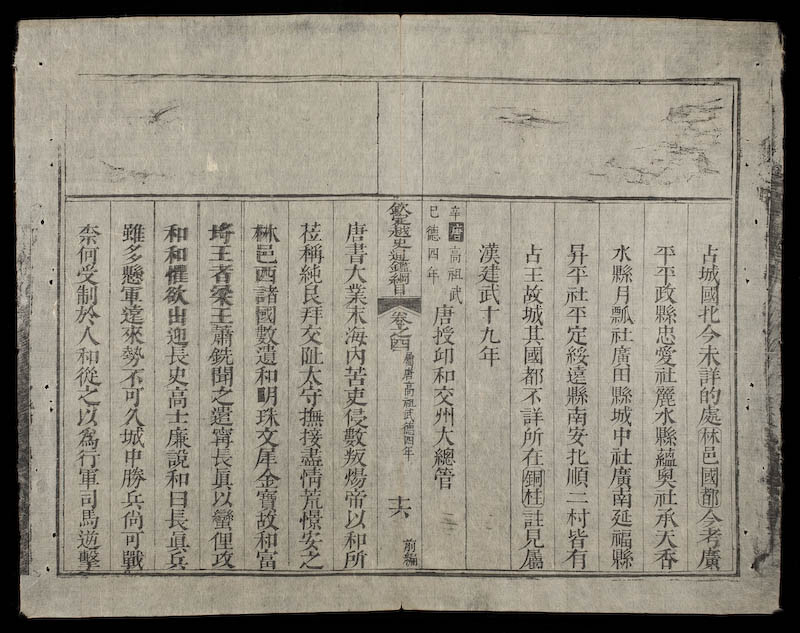 占城國北今未詳的處林邑國都今考廣
平平政縣忠愛社麗水縣蘊奧社承天香
水縣月瓢社廣田縣城中社廣南延福縣
昇平社平定綏遠縣南安北順二村皆有
占王故城其國都不詳所在銅柱註見屬
漢建武十九年
辛唐高祖武
巳德四年
唐授邱和交州大總管
欽定越史通鑑綱目
卷之四
屬唐高祖武德四年
十六
前編
唐書大業末海內苦吏侵數叛煬帝以和所
莅稱純良拜交阯太守撫接盡情荒憬安之
林邑西諸國數遺和明珠文犀金寶故和富
埓王者梁王蕭銑聞之遣寗長眞以蠻俚攻
和和懼欲出迎長史高士廉說和曰長眞兵
雖多懸軍遠來勢不可久城中勝兵尙可戰
柰何受制於人和從之以爲行軍司馬逆擊